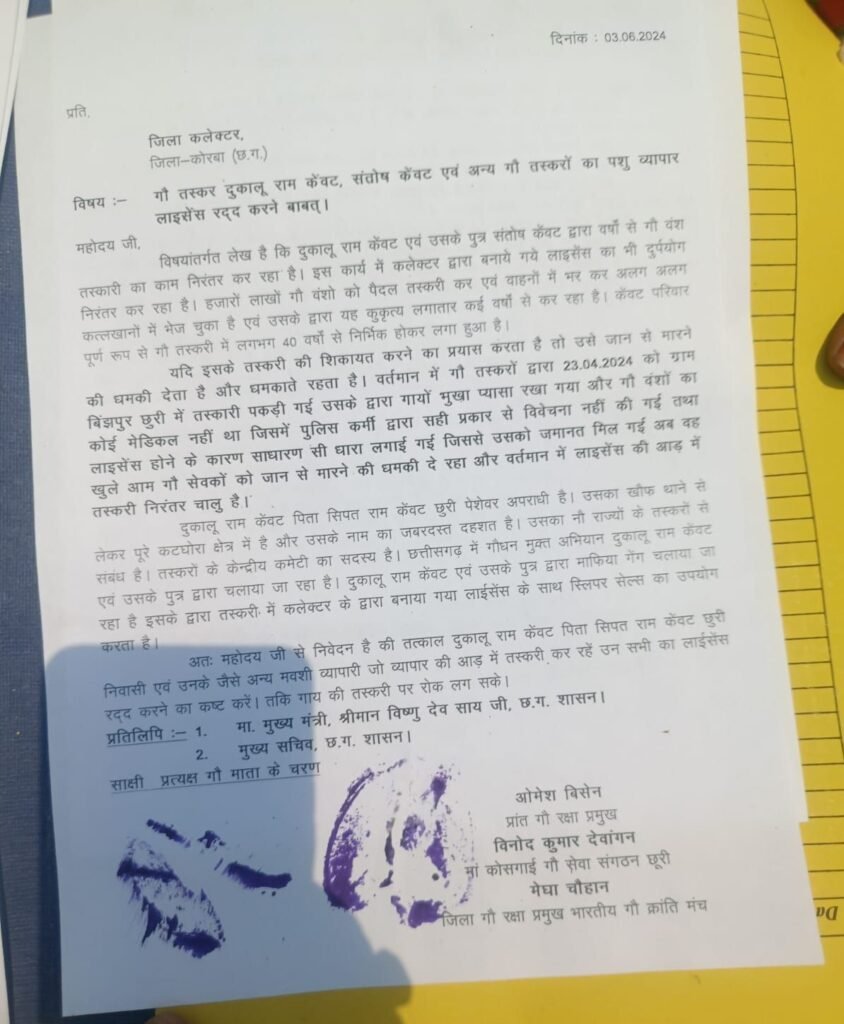 दिनांक : 03.06.2024
प्रति,
जिला कलेक्टर,
जिला–कोरबा (छ.ग.)
विषय :– गौ तस्कर दुकालू राम केंवट, संतोष केंवट एवं अन्य गौ तस्करों का पशु व्यापार
लाइसेंस रद्द करने बाबत्।
महोदय जी,
विषयांतर्गत लेख है कि दुकालू राम केंवट एवं उसके पुत्र संतोष केंवट द्वारा वर्षो से गौ वंश
तस्कारी का काम निरंतर कर रहा है। इस कार्य में कलेक्टर द्वारा बनाये गये लाइसेंस का भी दुर्पयोग
निरंतर कर रहा है। हजारों लाखों गौ वंशो को पैदल तस्करी कर एवं वाहनों में भर कर अलग अलग
कत्लखानों में भेज चुका है एवं उसके द्वारा यह कुकृत्य लगातार कई वर्षो से कर रहा है। केंवट परिवार
पूर्ण रूप से गौ तस्करी में लगभग 40 वर्षो से निर्भिक होकर लगा हुआ है।
यदि इसके तस्करी की शिकायत करने का प्रयास करता है तो उसे जान से मारने
की धमकी देता है और धमकाते रहता है। वर्तमान में गौ तस्करों द्वारा 23.04.2024 को ग्राम
बिंझपुर छुरी में तस्कारी पकड़ी गई उसके द्वारा गायों भुखा प्यासा रखा गया और गौ वंशों का
कोई मेडिकल नहीं था जिसमें पुलिस कर्मी द्वारा सही प्रकार से विवेचना नहीं की गई तथा
लाइसेंस होने के कारण साधारण सी धारा लगाई गई जिससे उसको जमानत मिल गई अब वह
खुले आम गौ सेवकों को जान से मारने की धमकी दे रहा और वर्तमान में लाइसेंस की आड़ में
तस्करी निरंतर चालु है।
दुकालू राम केंवट पिता सिपत राम केंवट छुरी पेशेवर अपराधी है। उसका खौफ थाने से
लेकर पूरे कटघोरा क्षेत्र में है और उसके नाम का जबरदस्त दहशत है। उसका नौ राज्यों के तस्करों से
संबंध है। तस्करों के केन्द्रीय कमेटी का सदस्य है। छत्तीसगढ़ में गौधन मुक्त अभियान दुकालू राम केंवट
एवं उसके पुत्र द्वारा चलाया जा रहा है। दुकालू राम केंवट एवं उसके पुत्र द्वारा माफिया गेंग चलाया जा
रहा है इसके द्वारा तस्करी में कलेक्टर के द्वारा बनाया गया लाईसेंस के साथ स्लिपर सेल्स का उपयोग
करता है।
अतः महोदय जी से निवेदन है की तत्काल दुकालू राम केंवट पिता सिपत राम केंवट छुरी
निवासी एवं उनके जैसे अन्य मवशी व्यापारी जो व्यापार की आड़ में तस्करी कर रहें उन सभी का लाईसेंस
रद्द करने का कष्ट करें। तकि गाय की तस्करी पर रोक लग सके।
प्रतिलिपि :– 1. मा. मुख्य मंत्री, श्रीमान विष्णु देव साय जी, छ.ग. शासन।
2. मुख्य सचिव, छ.ग. शासन।
साक्षी प्रत्यक्ष गौ माता के चरण
ओमेश बिसेन
प्रांत गौ रक्षा प्रमुख
विनोद कुमार देवांगन
मां कोसगाई गौ सेवा संगठन छूरी
मेघा चौहान
जिला गौ रक्षा प्रमुख भारतीय गौ क्रांति मंच